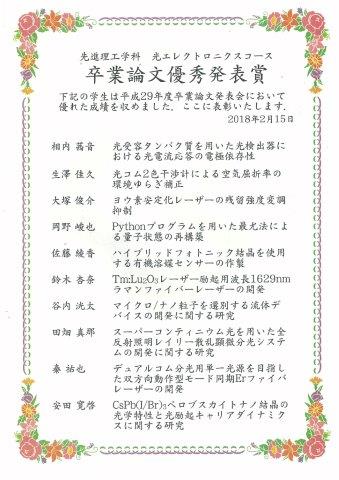 先進理工学科　光エレクトロニクスコース
卒業論文優秀発表賞
下記の学生は平成29年度卒業論文発表会において
優れた成績を収めました．ここに表彰いたします．
2018年2月15日
相内 茜音　光受容タンパク質を用いた光検出器に
おける光電流応答の電極依存性
生澤 佳久　光コム2色干渉計による空気屈折率の
環境ゆらぎ補正
大塚 俊介　ヨウ素安定化レーザーの残留強度変調
抑制
岡野 峻也　Pythonプログラムを用いた最尤法によ
る量子状態の再構築
佐藤 綾香　ハイブリッドフォトニック結晶を使用
する有機溶媒センサーの作製
鈴木 杏奈　Tm:Lu2O3レーザー励起用波長1629nm
ラマンファイバーレーザーの開発
谷内 洸太　マイクロ/ナノ粒子を選別する流体デ
バイスの開発に関する研究
田畑 真那　スーパーコンティニウム光を用いた全
反射照明レイリー散乱顕微分光システ
ムの開発に関する研究
秦 祐也　デュアルコム分光用単一光源を目指し
た双方向動作型モード同期Erファイバ
レーザーの開発
安田 寛啓　CsPb(I/Br)3ペロブスカイトナノ結晶の
光学特性と光励起キャリアダイナミク
スに関する研究